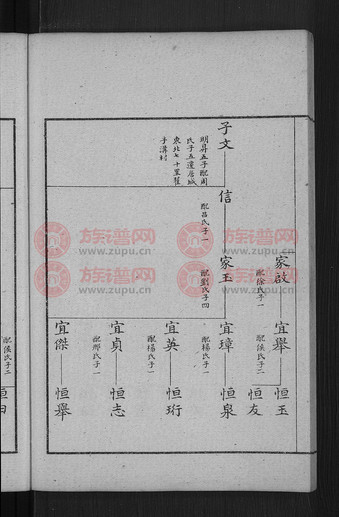 家啟
配徐氏子一
宜舉
配侯氏子二
恒玉
恒友
子文
明昇五子配周
氏子五遷居城
東北七十里翟
子溝村
信
配呂氏子一
家玉
配劉氏子四
宜璋
配楊氏子一
恒泉
宜英
配楊氏子一
恒珩
宜貞
恒志
宜傑
配侯氏子二
恒舉
族谱网
www.zupu.cn
族谱网
www.zupu.cn
族谱网
www.zupu.cn
族谱网
www.zupu.cn